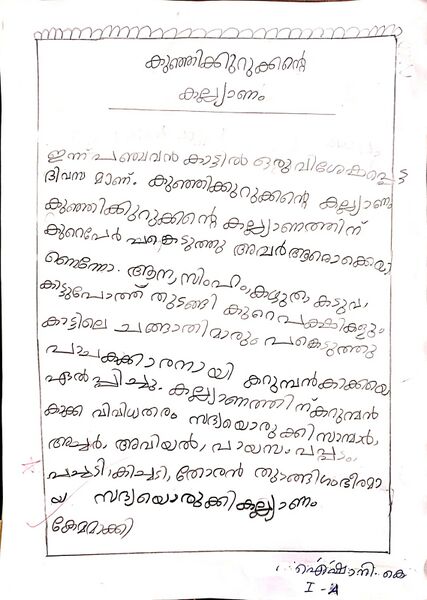 കുഞ്ഞിക്കുറുക്കന്റെ
കല്ല്യാണം
ഇന്ന് പഞ്ചവൻ കാട്ടിൽ ഒരു വിശേഷപ്പെട്ട
ദിവസ മാണ്. കുഞ്ഞിക്കുറുക്കന്റെ കല്ല്യാണം
കുഞ്ഞിക്കുറുക്കന്റെ കല്ല്യാണത്തിന്
കുറെപേർ പങ്കെടുത്തു അവർ ആരൊക്കെയാ
ണെന്നോ. ആന, സിംഹം, കഴുത, കടുവ,
കാട്ടുപോത്ത് തുടങ്ങി കുറെ പക്ഷികളും
കാട്ടിലെ ചങ്ങാതിമാരും പങ്കെടുത്തു
പാചകക്കാരനായി കറുമ്പൻകാക്കയെ
ഏൽപ്പിച്ചു. കല്ല്യാണത്തിന് കറുമ്പൻ
കാക്ക വിവിധതരം സദ്യയൊരുക്കി സാമ്പാർ,
അച്ചാർ, അവിയൽ, പായസം പപ്പടം,
പച്ചടി, കിച്ചടി, തോരൻ തുടങ്ങി ഗംഭീരമാ
യ സദ്യയൊരുക്കി കല്ല്യാണം
കേമമാക്കി
ഐഷാനി. കെ
I - A